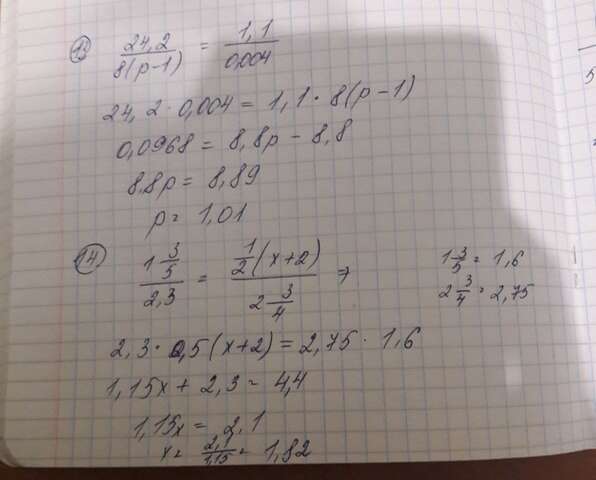 13 24,2/8(p-1) = 1,1/0,004
24,2·0,004 = 1,1·8(p-1)
0,0968 = 8,8p - 8,8
8,8p = 8,89
p = 1,01
14 1 3/5/2,3 = 1/2(x+2)/2 3/4 ⇒
1 3/5 = 1,6
2 3/4 = 2,75
2,3·0,5(x+2) = 2,75·1,6
1,15x + 2,3 = 4,4
1,15x = 2,1
x = 2,1/1,15 = 1,82